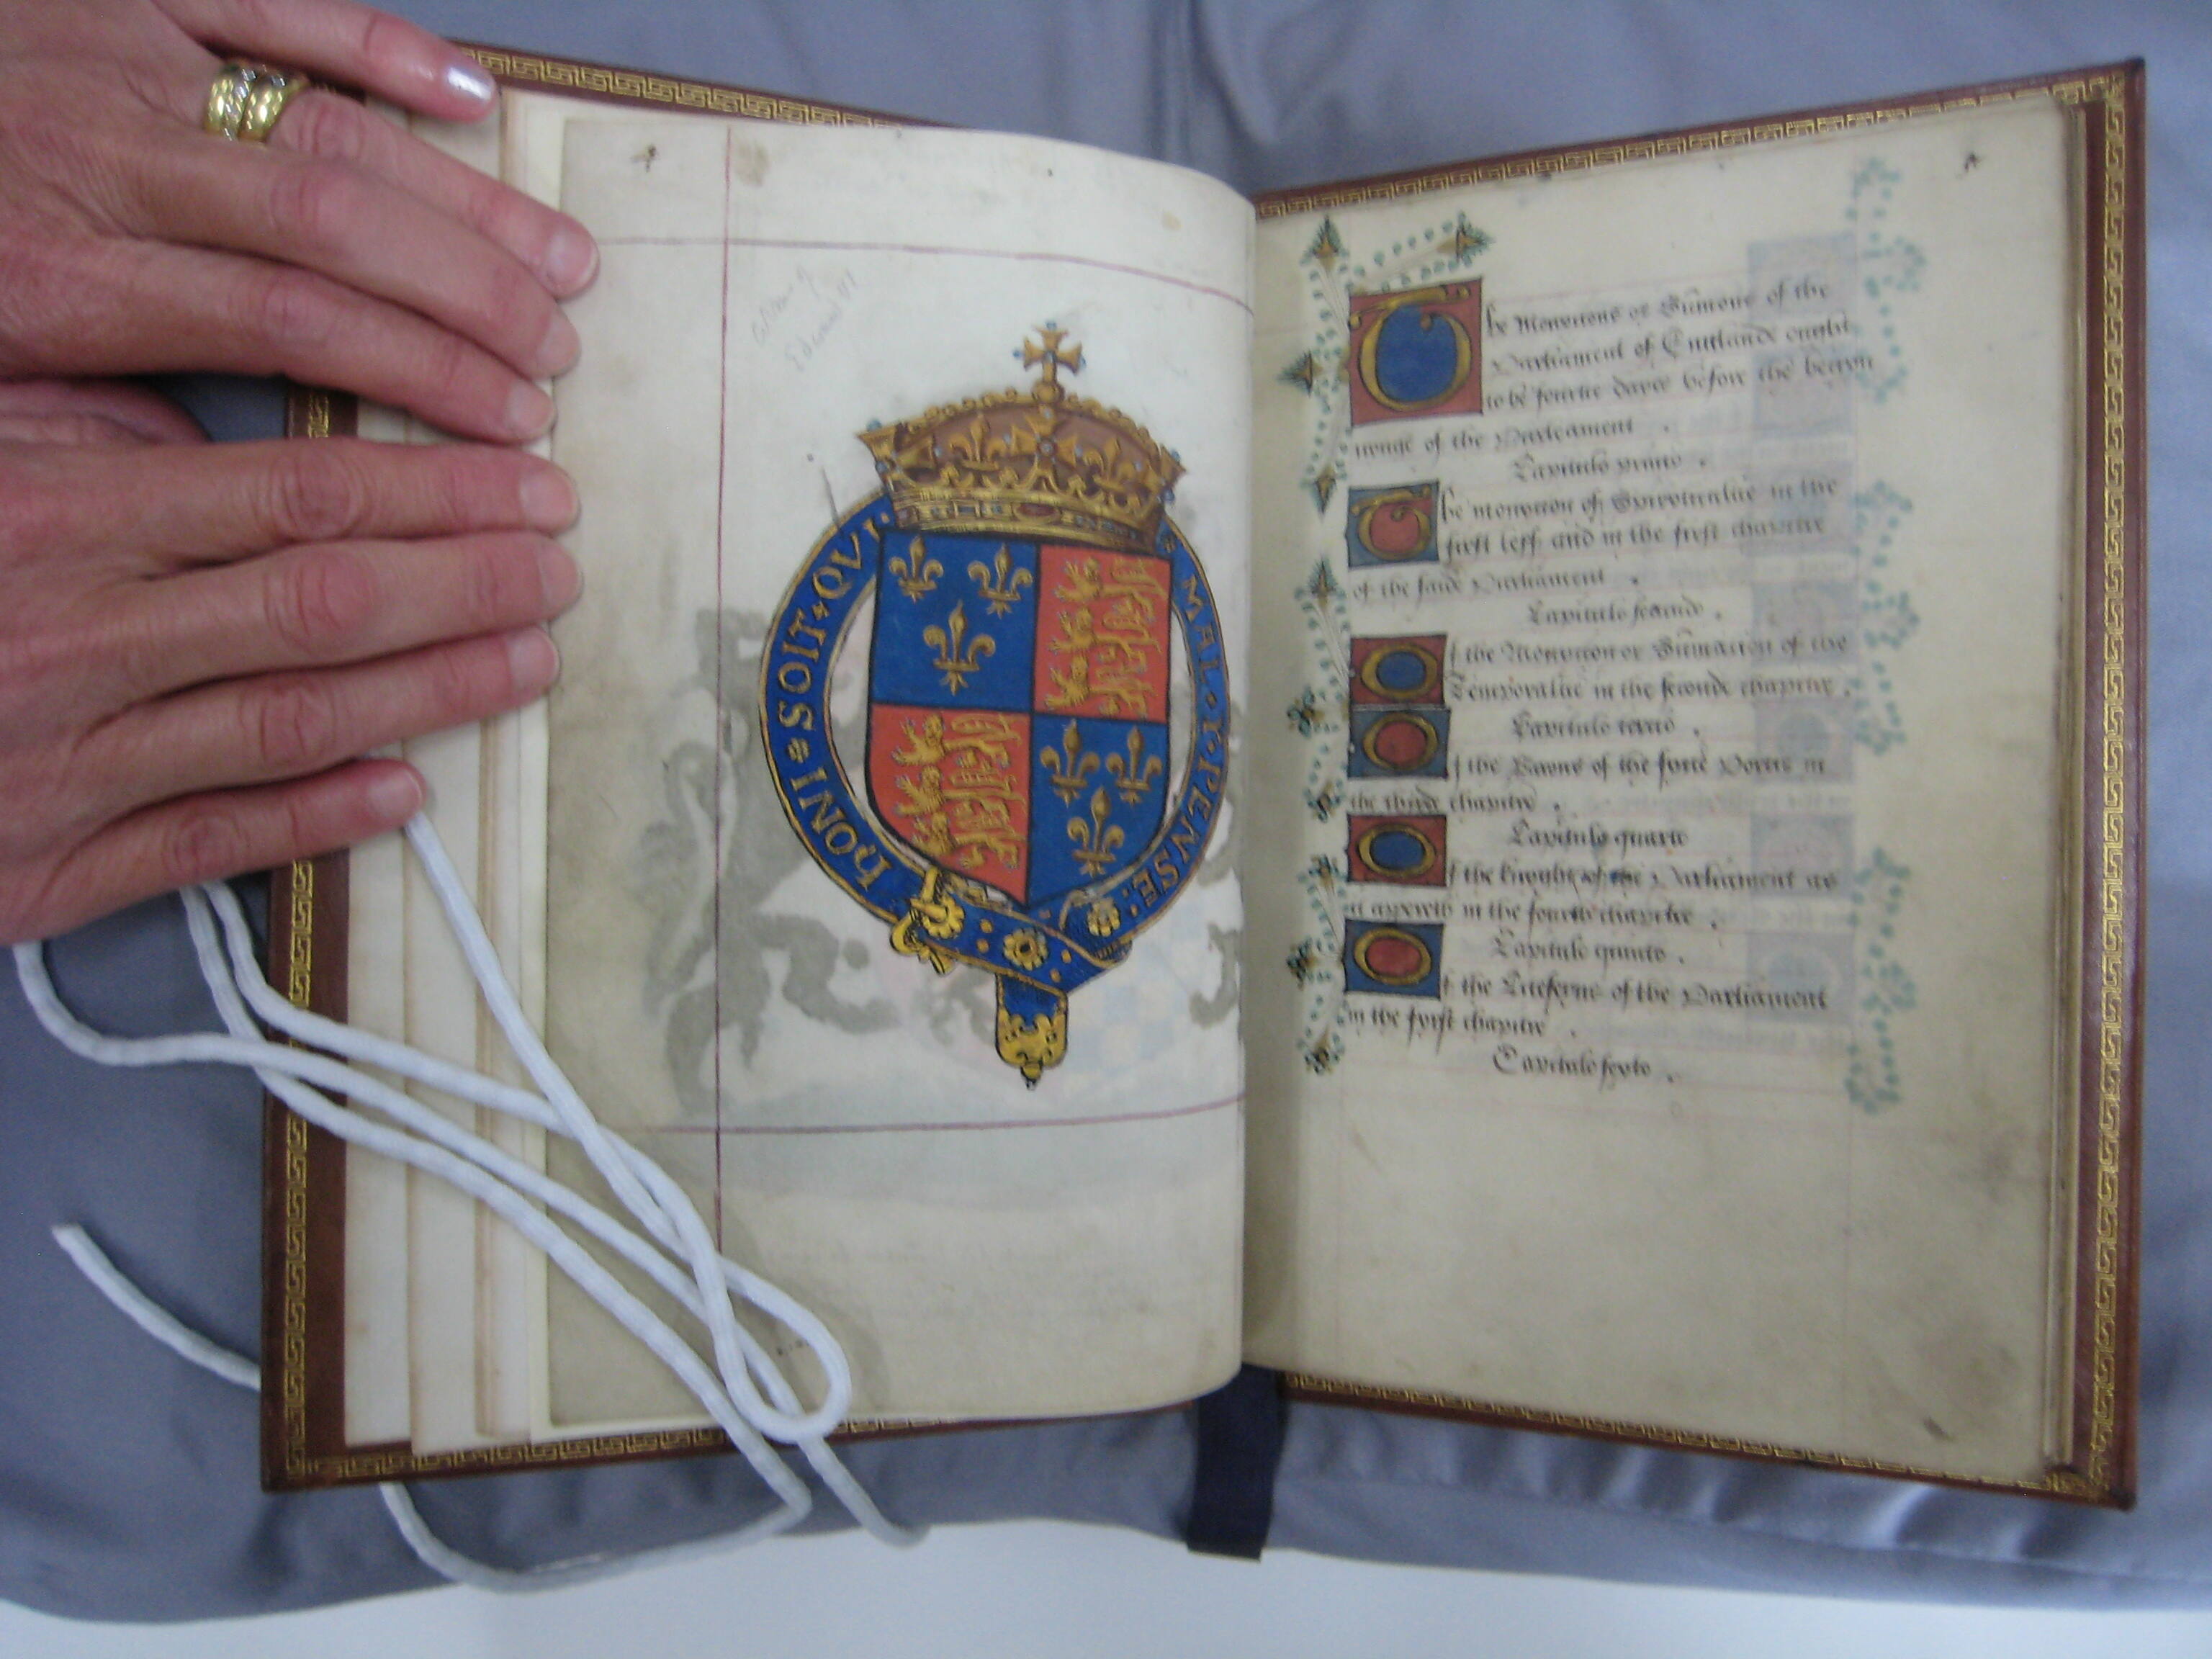 Arms of
Edward VI
HONI · SOIT · QVI · MAL · Y · PENSE :
The Monicions or Sumons of the
Parliament of Englande ought
to be fourtie daies before the begyn
nynge of the Parleament .
Capitulo primo .
The monicion of Spiritualtie in the
first leff and in the first chapitre
of the said Parliament .
Capitulo secundo .
Of the Monicion or Sumacion of the
Temporaltie in the seconde chapitre .
Capitulo tercio .
Of the Barons of the fyve Portis in
the thirde chapitre .
Capitulo quarto
Of the knyghtis of the Parliament as
it apereth in the fourth chapitre .
Capitulo quinto .
Of the of the Parliament
in the fyrst chapitre .
Capitulo sexto .